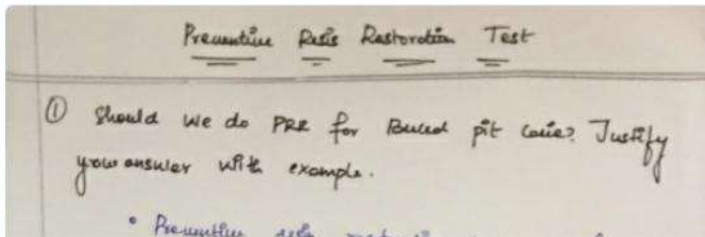 Preventive Resin Restoration Test
① Should we do PRR for Buccal pit caries? Justify
your answer with example.
• Preventive resin